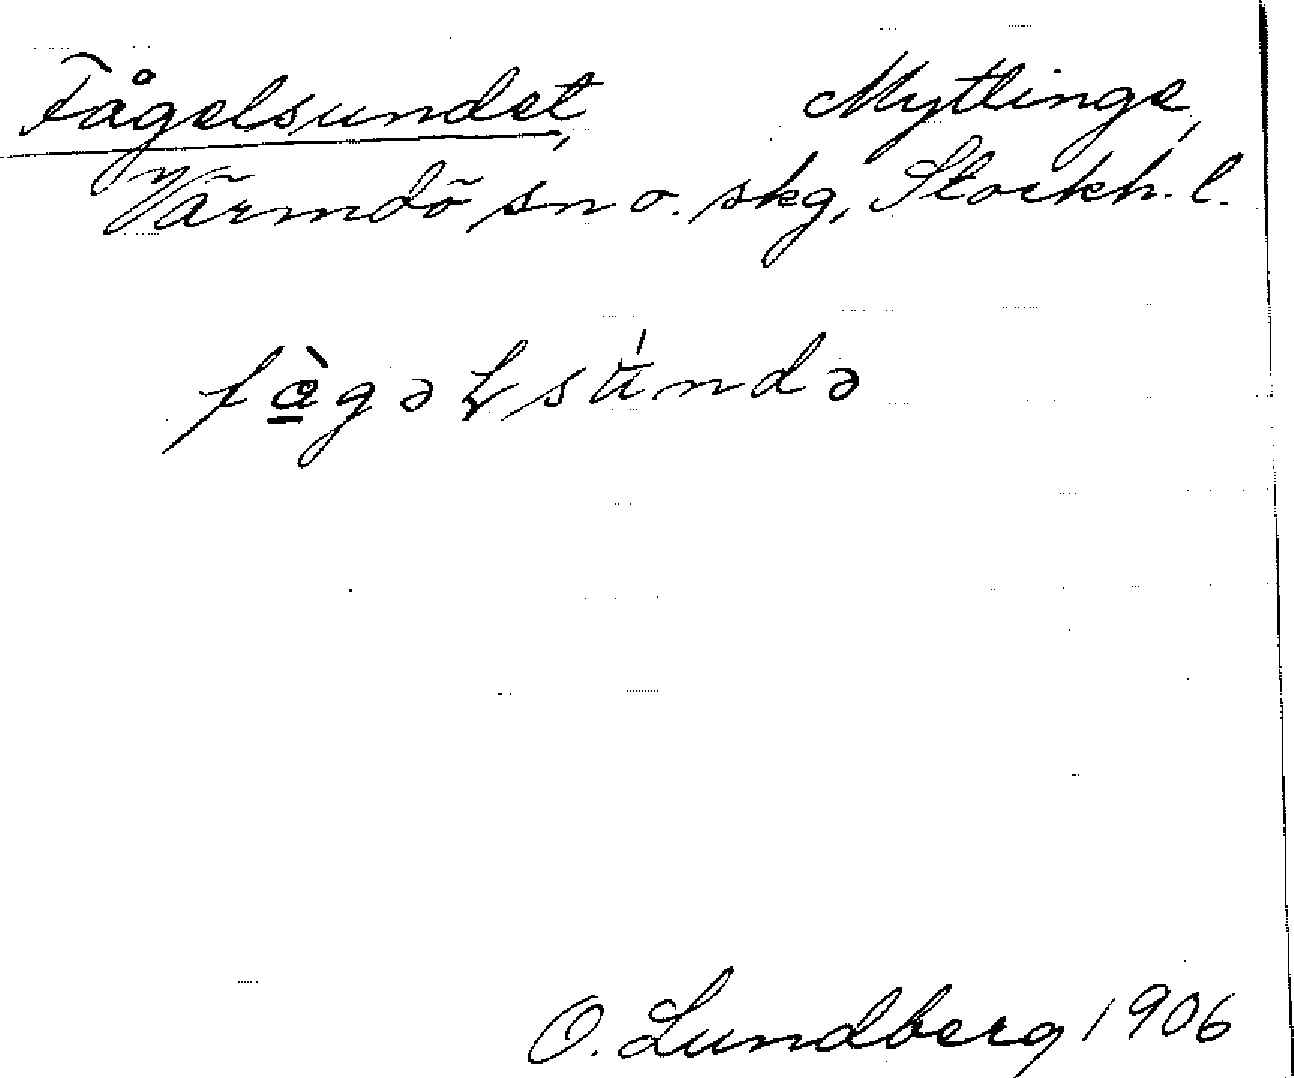 Fågelsundet, Myttinge,
Värmdö sn o. skg, Stockh. l.
fὰ̲gəɫstúndə
O. Lundberg 1906